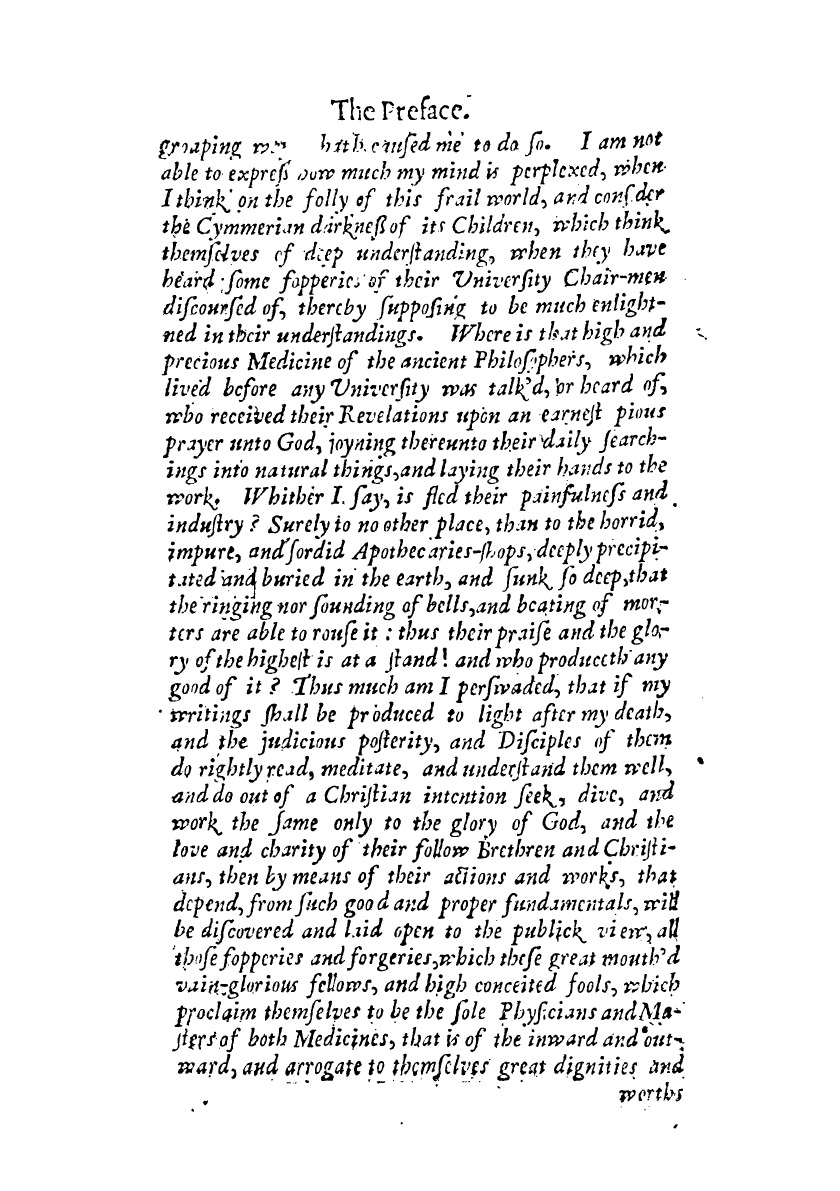 The Preface.
hath caused me to do so. I am not
able to expreſſ how much my mind is perplexed, when
I think on the folly of this frail world, and conſider
the Cymmerian darkneſſ of its Children, which think
themſelves of deep underſtanding, when they have
heard ſome fopperies of their Univerſity Chair-men
diſcourſed of, thereby ſuppoſing to be much enlight-
ned in their underſtandings. Where is that high and
precious Medicine of the ancient Philoſophers, which
lived before any Univerſity was talk'd, or heard of,
who received their Revelations upon an earneſt pious
prayer unto God, joyning thereunto their daily ſearch-
ings into natural things, and laying their hands to the
work. Whither I ſay, is fled their painfulneſs and
induſtry ? Surely to no other place, than to the horrid,
impure, and ſordid Apothecaries-ſhops, deeply precipi-
tated and buried in the earth, and ſunk ſo deep, that
the ringing nor ſounding of bells, and beating of mor-
ters are able to rouſe it : thus their praiſe and the glo-
ry of the higheſt is at a ſtand ! and who produceth any
good of it ? Thus much am I perſwaded, that if my
writings ſhall be produced to light after my death,
and the judicious poſterity, and Diſciples of them
do rightly read, meditate, and underſtand them well,
and do out of a Chriſtian intention ſeek, dive, and
work the ſame only to the glory of God, and the
love and charity of their follow Brethren and Chriſti-
ans, then by means of their actions and works, that
depend, from ſuch good and proper fundamentals, will
be diſcovered and laid open to the publick view, all
thoſe fopperies and forgeries, which theſe great mouth'd
vain-glorious fellows, and high conceited fools, which
proclaim themſelves to be the ſole Phyſicians and Ma-
ſters of both Medicines, that is of the inward and out-
ward, and arrogate to themſelves great dignities and
worths